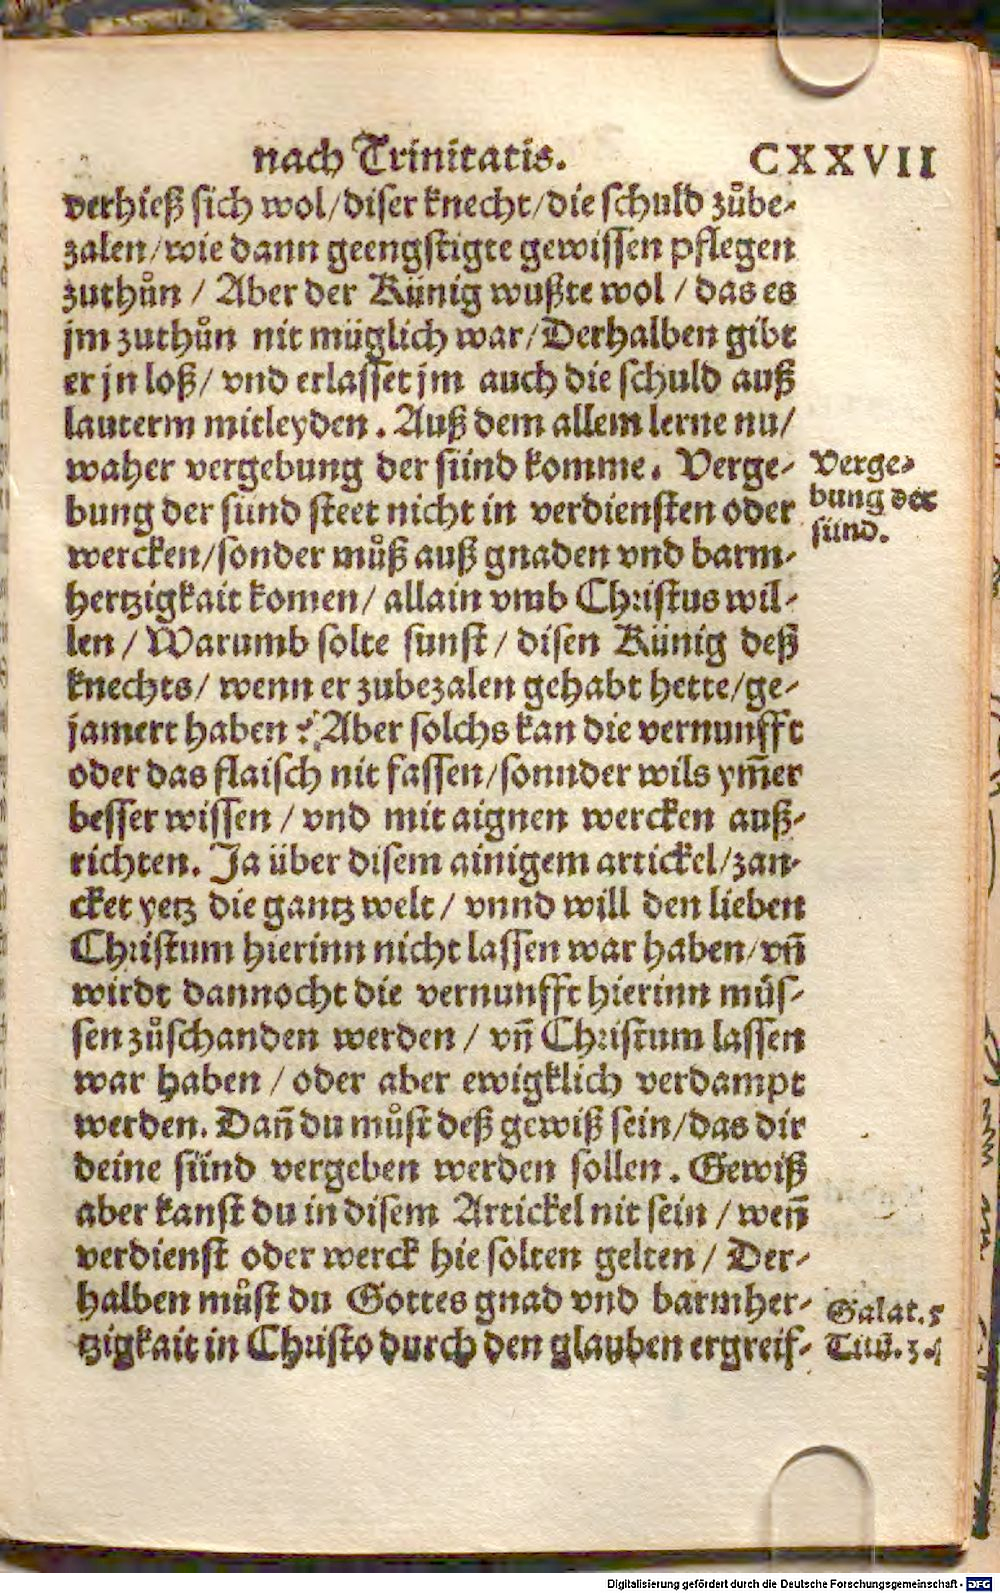 nach Trinitatis. CXXVII
verhieß sich wol/diser knecht/die schuld zůbe-
zalen/wie dann geengstigte gewissen pflegen
zuthůn / Aber der Künig wußte wol / das es
jm zuthůn nit müglich war/Derhalben gibt
er jn loß/ vnd erlasset jm auch die schuld auß
lauterm mitleyden. Auß dem allem lerne nu/
waher vergebung der sünd komme. Verge-
bung der sünd steet nicht in verdiensten oder
wercken/sonder můß auß gnaden vnd barm-
hertzigkait komen/ allain vmb Christus wil-
len / Warumb solte sunst / disen Künig deß
knechts/ wenn er zubezalen gehabt hette/ge-
jamert haben ? Aber solchs kan die vernunfft
oder das flaisch nit fassen/sonnder wils ym̃er
besser wissen / vnd mit aignen wercken auß-
richten. Ja über disem ainigem artickel/zan-
cket yetz die gantz welt / vnnd will den lieben
Christum hierinn nicht lassen war haben/vñ
wirdt dannocht die vernunfft hierinn müs-
sen zůschanden werden / vñ Christum lassen
war haben / oder aber ewigklich verdampt
werden. Dañ du můst deß gewiß sein/das dir
deine sünd vergeben werden sollen. Gewiß
aber kanst du in disem Artickel nit sein / weñ
verdienst oder werck hie solten gelten / Der-
halben můst du Gottes gnad vnd barmher-
tzigkait in Christo durch den glauben ergreif-
Verge-
bung der
sünd.
Galat. 5
Titu. 3.
Digitalisierung gefördert durch die Deutsche Forschungsgemeinschaft - DFG